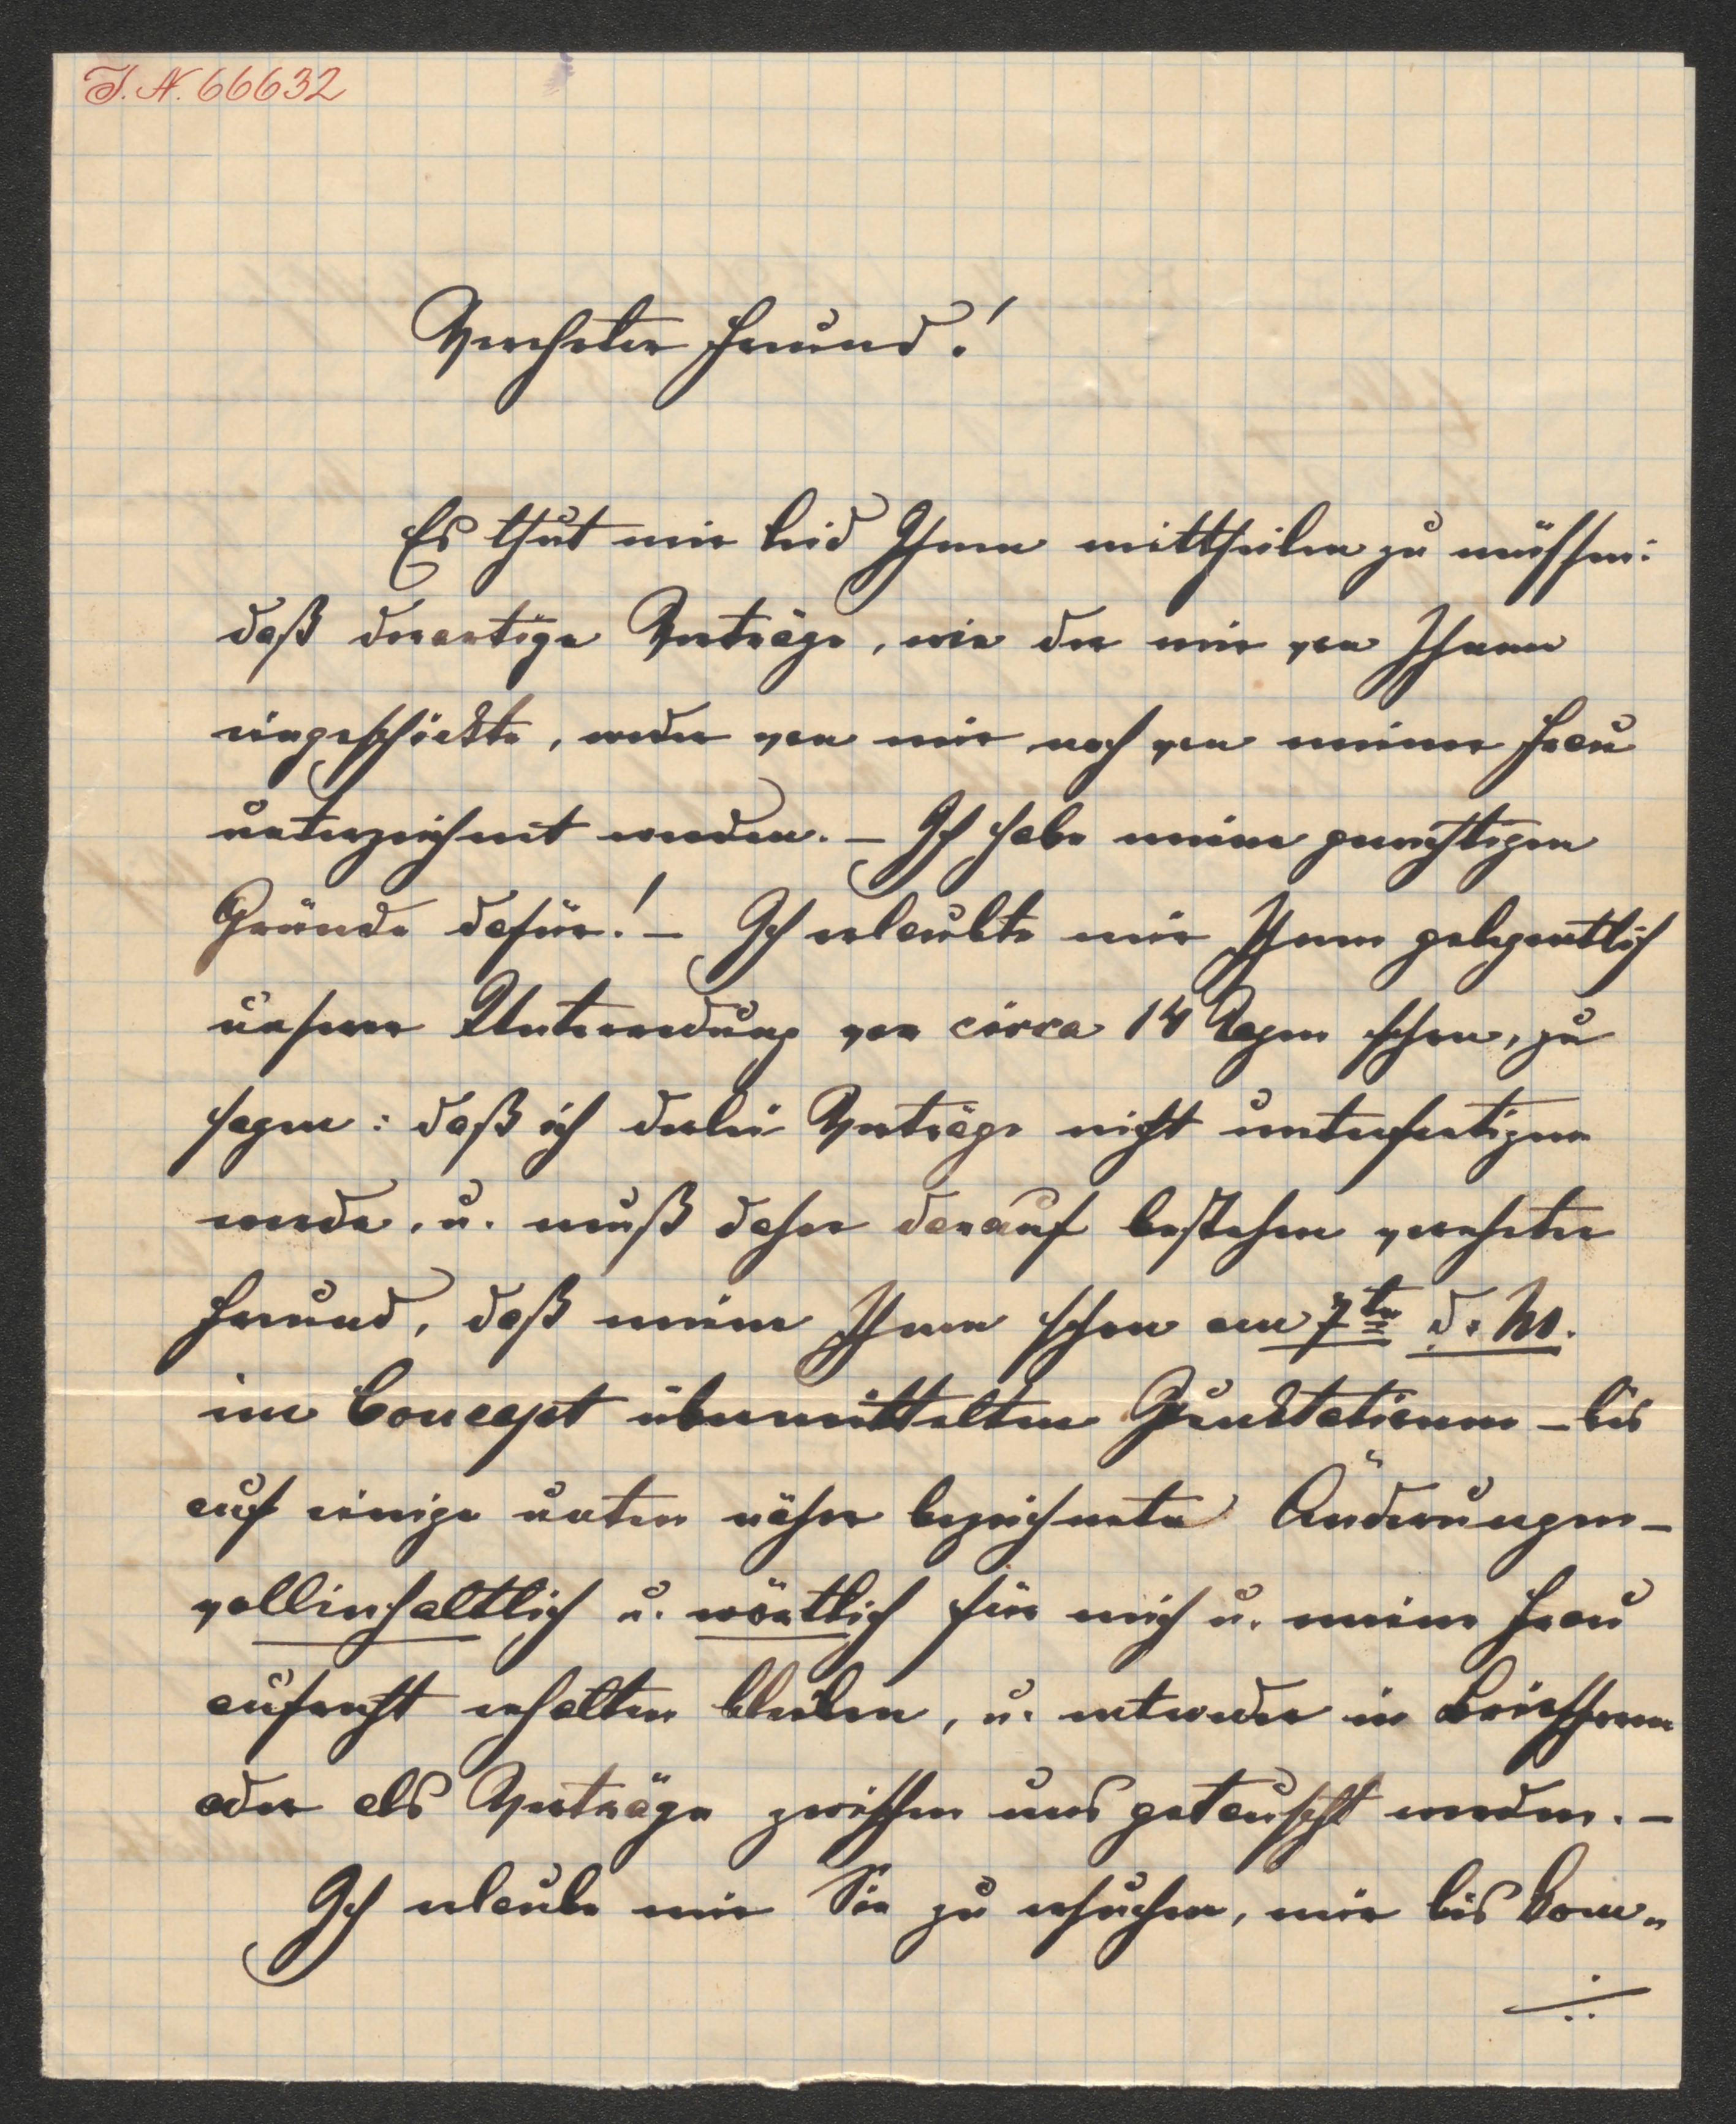 I. N. 66632
Verehrter Freund!
Es thut mir leid Ihnen mittheilen zu müssen:
daß derartige Verträge, wie der mir von Ihnen
eingeschickte, weder von mir noch von meiner Frau
unterzeichnet werden. – Ich habe meine gewichtigen
Gründe dafür! – Ich erlaubte mir Ihnen gelegentlich
unserer Unterredung vor circa 14 Tagen schon, zu
sagen: daß ich derlei Verträge nicht unterfertigen
werde, u. muß daher darauf bestehen verehrter
Freund, daß meine Ihnen schon am 7ten d. M.
im Concept übermittelten Punktationen – bis
auf einige unten näher bezeichnete Änderungen –
vollinhaltlich u. wörtlich für mich u. meine Frau
aufrecht erhalten bleiben, u. entweder in Briefform
oder als Verträge zwischen uns getauscht werden. –
Ich erlaube mir Sie zu ersuchen, mir bis kom-